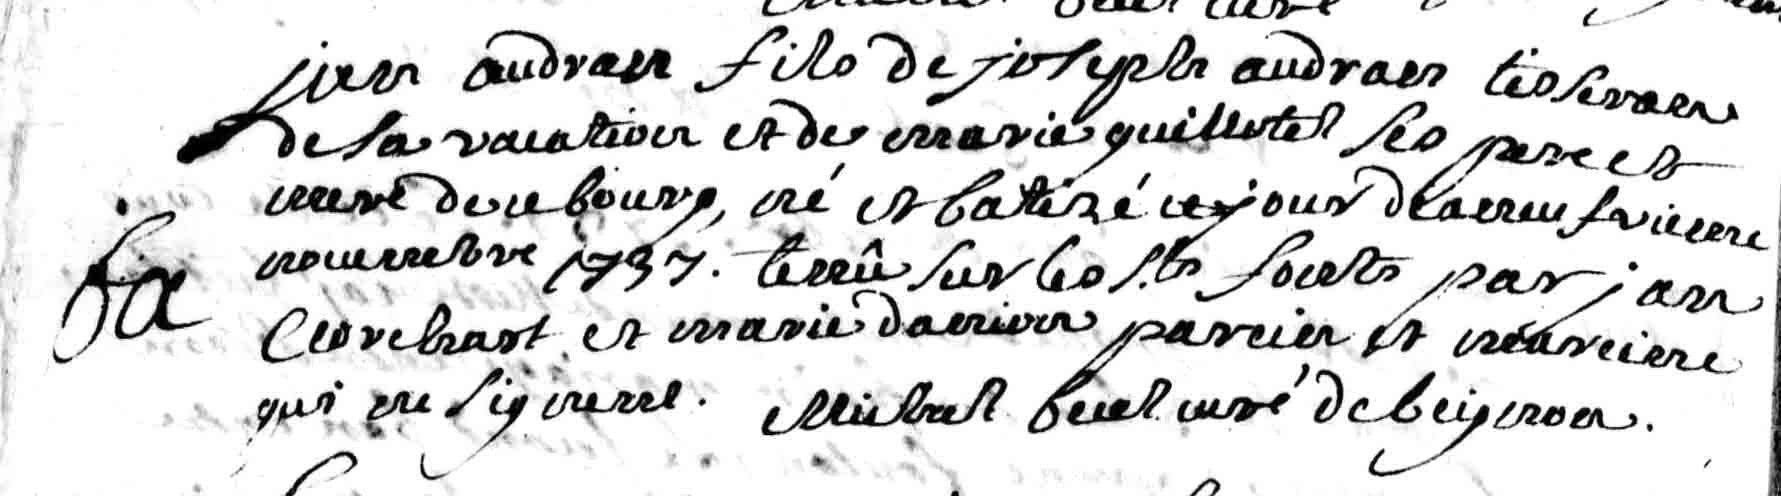 jean audrain fils de joseph audrain tisseran
de sa vacation et de marie guillotel ses pere et
mere de ce bourg, né et batizé ce jour dixneufvieme
novembre 1737. tenû sur les sts fonts par jan
et marie danion parein et mareine
qui ne signent. Michel curé de beignon.